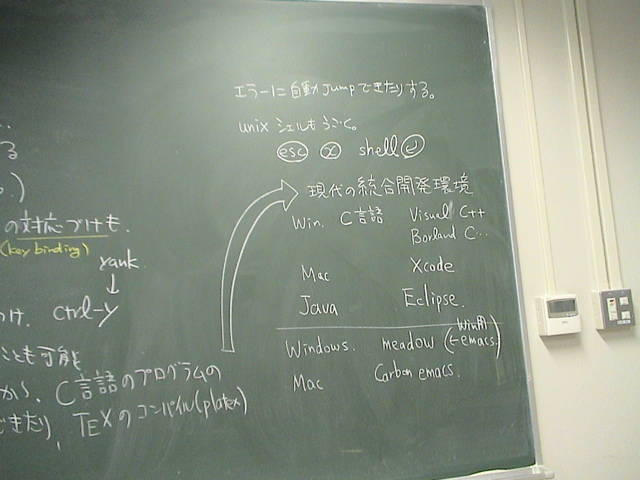 る
の対応づけも.
(key binding)
yank
↓
ctrl-Y
ことも可能
から、C言語のプログラムの
できたり, TEXのコンパイル(platex)
エラーに自動Jumpできたりする。
unix シェルもうごく。
esc x shell
現代の統合開発環境
Win. C言語 Visual C++
Borland C...
Mac Xcode
Java Eclipse.
Windows. meadow (Win用 emacs.)
Mac Carbon emacs.